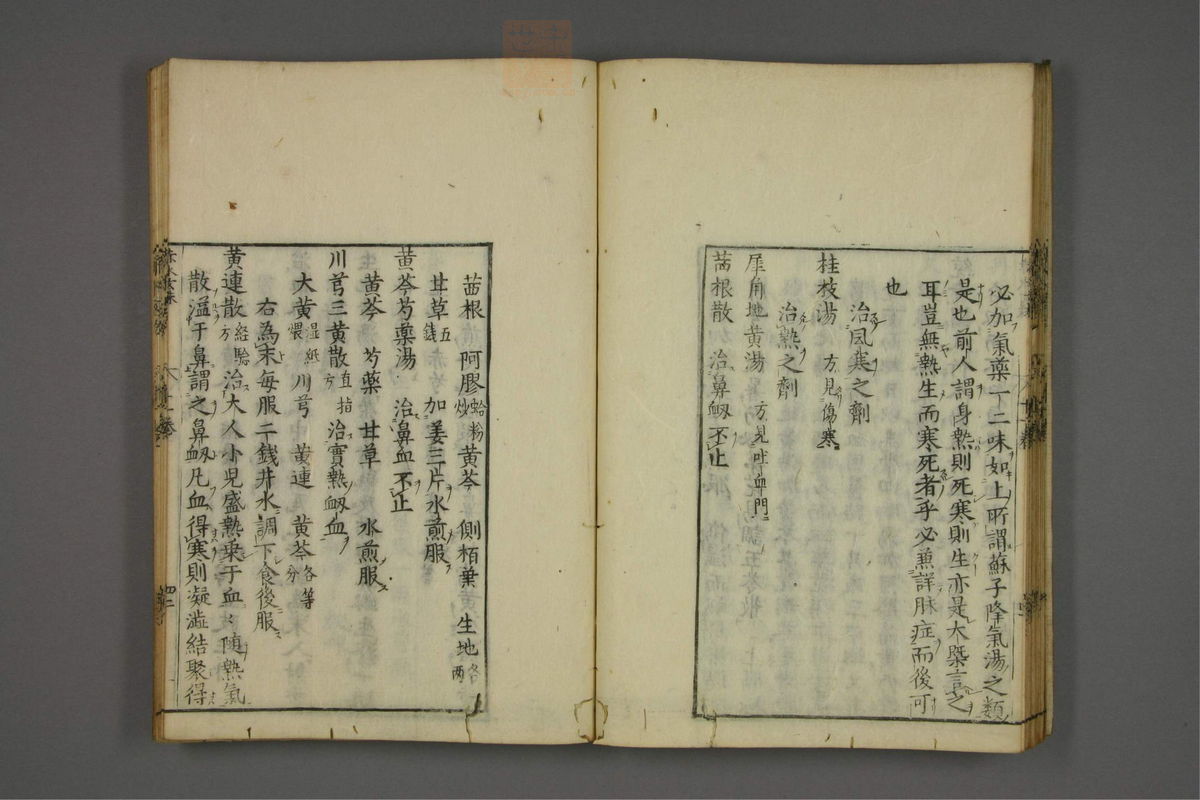 必加氣藥一二味如上所謂蘇子降氣湯之類
是也前人謂身熱則死寒則生亦是大槩言之
耳豈無熱生而寒死者乎必兼詳脉症而後可
也
治風寒之劑
桂枝湯 方見傷寒
治熱之劑
犀角地黄湯 方見吐血門
茜根散 治鼻衂不止
茜根 阿膠蛤粉炒 黄芩 側栢葉 生地各一兩
甘草五錢 加姜三片水煎服
黄芩芍藥湯 治鼻血不止
黄芩 芍藥 甘草 水煎服
川芎三黄散直指方 治實熱衂血
大黄濕紙煨 川芎 黄連 黄芩各等分
右為末每服二錢井水調下食後服
黄連散經驗方 治大人小兒盛熱乗于血血隨熱氣
散溢于鼻謂之鼻衂凡血得寒則凝澁結聚得